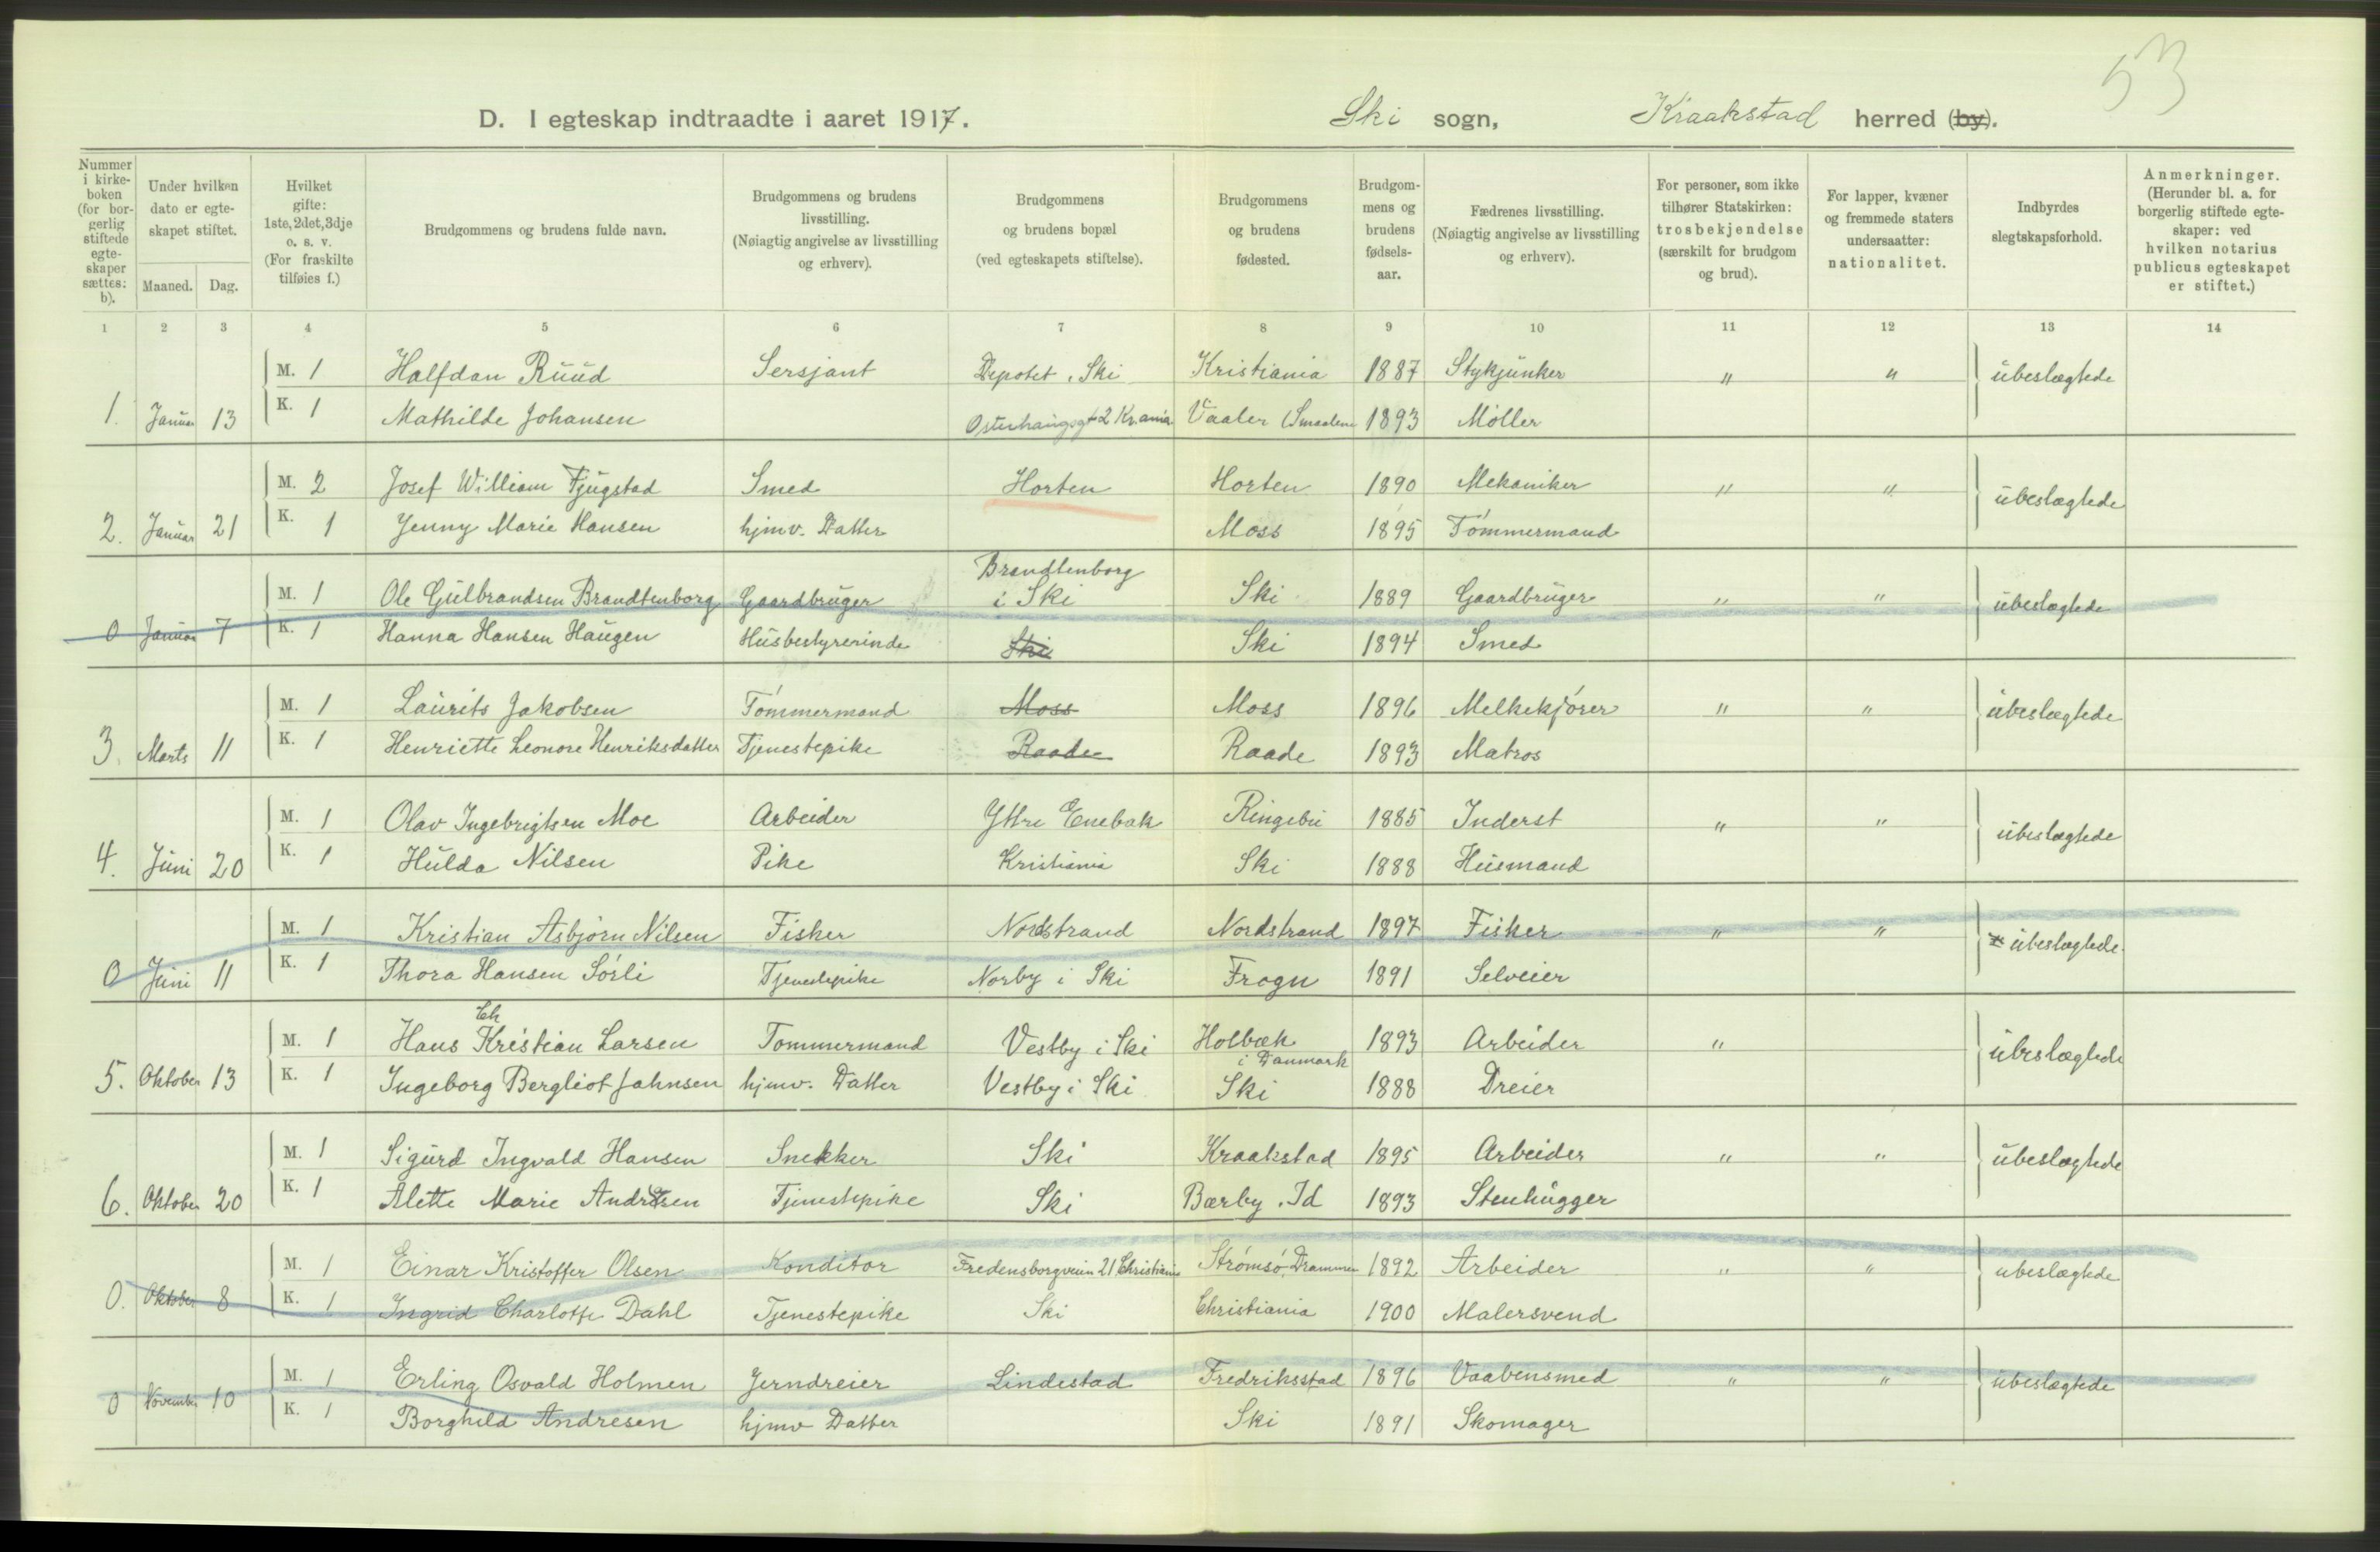 53
D. I egteskap indtraadte i aaret 1917. Ski sogn, Kraakstad herred (by).
Nummer i kirkeboken (for borgerlig stiftede egteskaper sættes: b). Under hvilken dato er egteskapet stiftet. Maaned. Dag. Hvilket gifte: 1ste, 2det, 3dje o. s. v. (For fraskilte tilføies f.) Brudgommens og brudens fulde navn. Brudgommens og brudens livsstilling. (Nøiagtig angivelse av livsstilling og erhverv). Brudgommens og brudens bopæl (ved egteskapets stiftelse). Brudgommens og brudens fødested. Brudgommens og brudens fødselsaar. Fædrenes livsstilling. (Nøiagtig angivelse av livsstilling og erhverv). For personer, som ikke tilhører Statskirken: trosbekjendelse (særskilt for brudgom og brud). For lapper, kvæner og fremmede staters undersaatter: nationalitet. Indbyrdes slegtskapsforhold. Anmerkninger. (Herunder bl. a. for borgerlig stiftede egteskaper: ved hvilken notarius publicus egteskapet er stiftet.)
1 2 3 4 5 6 7 8 9 10 11 12 13 14
M. 1 Halfdan Ruud Sersjant Depotet, Ski Kristiania 1887 Stykjunker " " ubeslægtede
1. Januar 13 K. 1 Mathilde Johansen 2 Kr.ania Vaaler (Smaalene 1893 Møller
M. 2 Josef William Fjugstad Smed Horten Horten 1890 Mekaniker " " ubeslægtede
2. Januar 21 K. 1 Jenny Marie Hansen hjmv. Datter Moss 1895 Tømmermand
Brandtenborg
M. 1 Ole Gulbrandsen Brandtenborg Gaardbruger i Ski Ski 1889 Gaardbruger " " ubeslægtede
0 Januar 7 K. 1 Hanna Hansen Haugen Husbestyrerinde Ski Ski 1894 Smed
M. 1 Laurits Jakobsen Tømmermand Moss Moss 1896 Melkekjører " " ubeslægtede
3. Marts 11 K. 1 Henriette Leonore Henriksdatter Tjenestepike Raade Raade 1893 Matros
M. 1 Olav Ingebrigtsen Moe Arbeider Yttre Enebak Ringebu 1885 Inderst " " ubeslægtede
4. Juni 20 K. 1 Hulda Nilsen Pike Kristiania Ski 1888 Husmand
M. 1 Kristian Asbjørn Nilsen Fisker Nordstrand Nordstrand 1897 Fisker " " ubeslægtede
0 Juni 11 K. 1 Thora Hansen Sørli Tjenestepike Norby i Ski Frogn 1891 Selveier
Ch
M. 1 Hans Kristian Larsen Tommermand Vestby i Ski Holbæk i Danmark 1893 Arbeider " ubeslægtede
5. Oktober 13 K. 1 Ingeborg Bergliot Jahnsen hjmv. Datter Vestby i Ski Ski 1888 Dreier
M. 1 Sigurd Ingvald Hansen Snekker Ski Kraakstad 1895 Arbeider " " ubeslægtede
6. Oktober 20 K. 1 Alette Marie Andresen Tjenestepike Ski Bærby. Id 1893 Stenhugger
M. 1 Einar Kristoffer Olsen Konditor Fredensborgveien 21 Christiania Strømsø, Drammen 1892 Arbeider " " ubeslægtede
0. Oktober 8 K. 1 Ingrid Charlotte Dahl Tjenestepike Ski Christiania 1900 Malersvend
M. 1 Erling Osvald Holmen Jerndreier Lindestad Fredriksstad 1896 Vaabensmed " " ubeslægtede
0 November 10 K. 1 Borghild Andresen hjmv Datter Ski 1891 Skomager